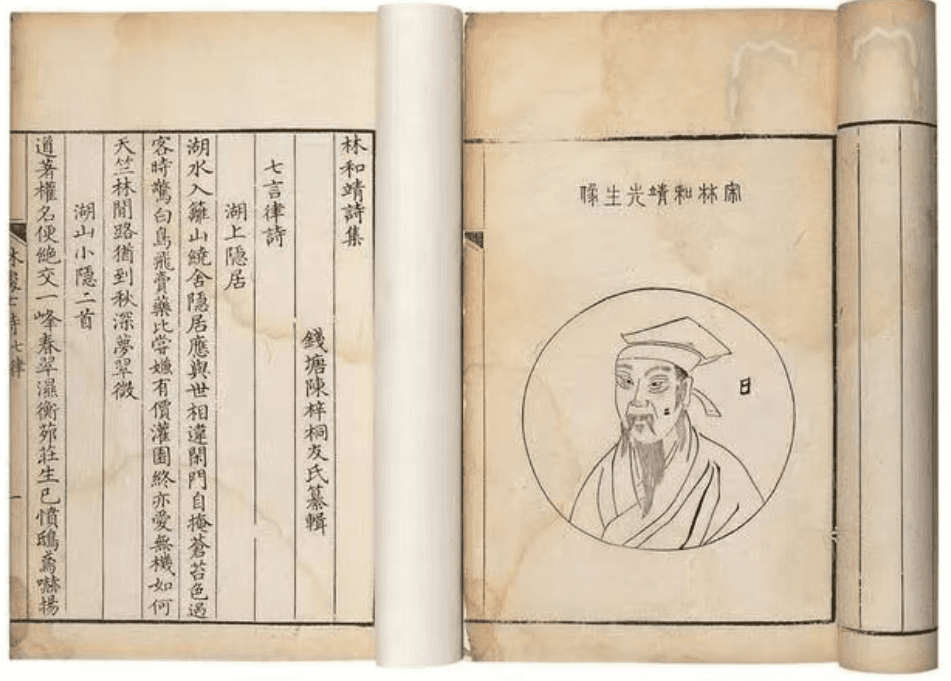 宋林和靖先生像
日
林和靖詩集
錢塘陳梓桐友氏纂輯
七言律詩
湖上隱居
湖水入籬山繞舍隱居應與世相違閑門自掩蒼苔色過
客時驚白鳥飛賣藥比嘗嫌有價灌園終亦愛無機如何
天竺林間路猶到秋深夢翠微
湖山小隱二首
道著權名便絶交一峰春翠濕衡茆莊生已憤鴟鳶嚇揚
七律
一